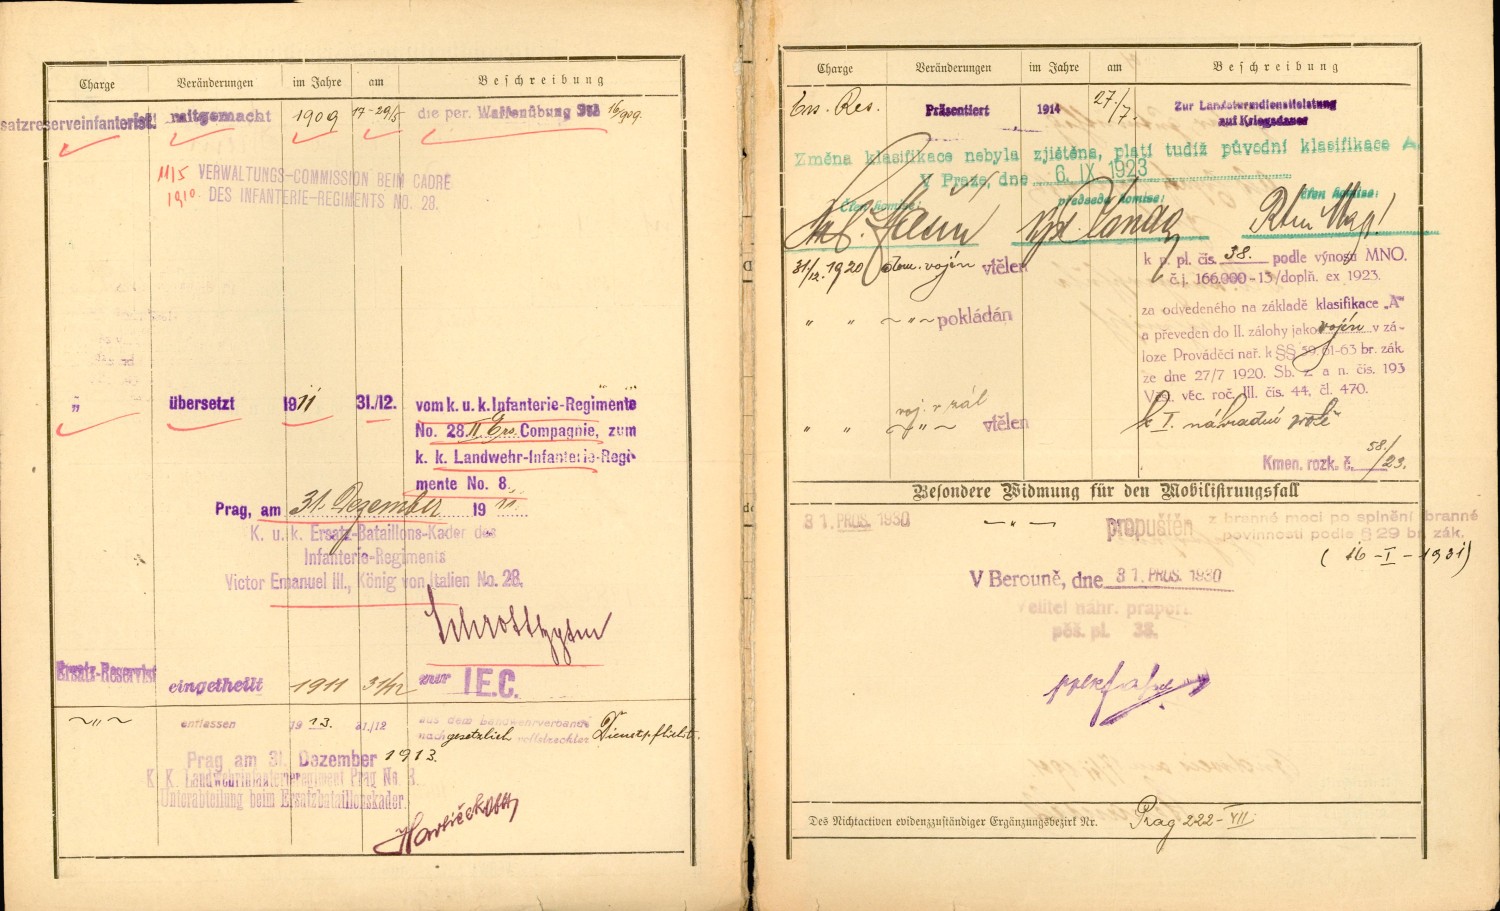 Charge Veränderungen im Jahre am Beschreibung
satzreserveinfanterist mitgemacht 1909 17-29/5 die per. Waffenübung 16/909.
11/5 VERWALTUNGS-COMMISSION BEIM CADRE
1910. DES INFANTERIE-REGIMENTS NO. 28.
„ übersetzt 1911 31./12. vom k. u. k. Infanterie-Regimente
No. 28 II Ers. Compagnie, zum
k. k. Landwehr-Infanterie-Regi-
mente No. 8.
Prag, am 31. Dezember 1911.
K. u. k. Ersatz-Bataillons-Kader des
Infanterie-Regiments
Victor Emanuel III., König von Italien No. 28.
Ersatz-Reservist eingetheilt 1911 31/12 zur I E.C.
~„~ entlassen 1913. 31./12 aus dem Landwehrverbande
nach gesetzlich vollstreckter Dienstpflicht.
Prag am 31. Dezember 1913.
K. K. Landwehrinfanterieregiment Prag No. 8.
Unterabteilung beim Ersatzbataillonskader.
Charge Veränderungen im Jahre am Beschreibung
Ers. Res. Präsentiert 1914 27./7. Zur Landsturmdienstleistung
auf Kriegsdauer
Změna klasifikace nebyla zjištěna, platí tudíž původní klasifikace A
V Praze, dne 6. IX 1923
člen komise: předseda komise: člen komise:
31/12. 1920 vojín vtělen k p. pl. čís. 38. podle výnosu MNO.
č. j. 166.000-13/doplň. ex 1923.
„ „ ~„~ pokládán za odvedeného na základě klasifikace „A“
a převeden do II. zálohy jako vojín v zá-
loze Prováděcí nař. k §§ 59, 61-63 br. zák.
ze dne 27/7 1920. Sb. z. a n. čís. 193
Věst. věc. roč. III. čís. 44, čl. 470.
voj. v zál
„ „ ~„~ vtělen k I. náhradní rotě
Kmen. rozk. č. 58/23.
Besondere Widmung für den Mobilisirungsfall
31. PROS. 1930 ~„~ propuštěn z branné moci po splnění branné
povinnosti podle § 29 br. zák.
(16-I-1931)
V Berouně, dne 31. PROS. 1930
Velitel náhr. praporu
pěš. pl. 38.
Des Nichtactiven evidenzzuständiger Ergänzungsbezirk Nr. Prag 222-VII